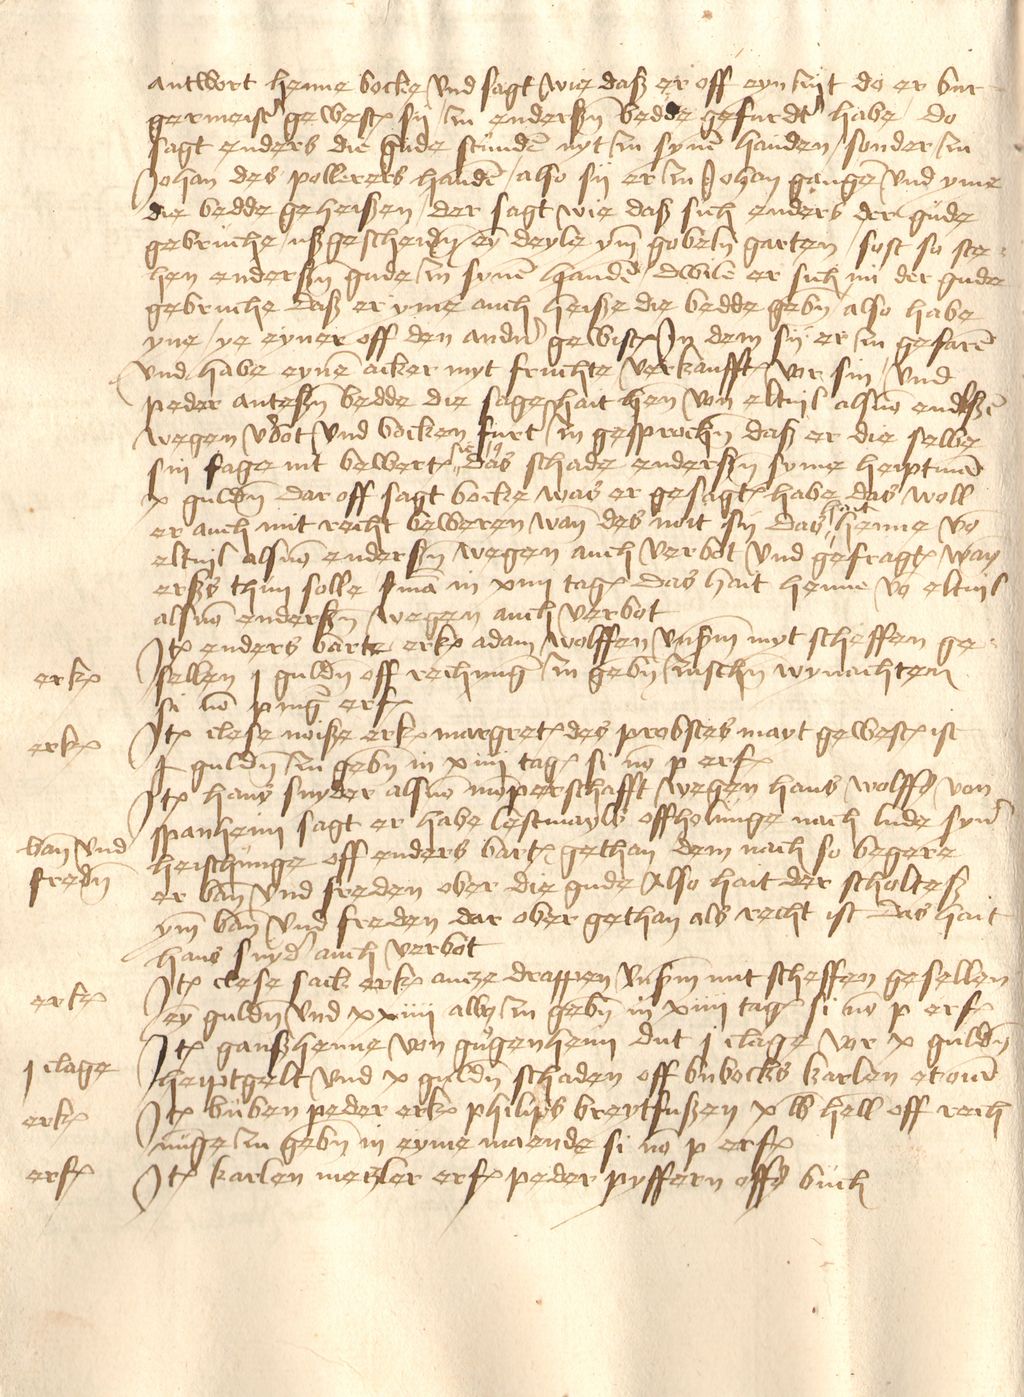 antwort henne bocke und sagt wie daß er off eyn zijt do er bur-
germeist(er) gewest sij zu enderßen bedde gefurdt habe do
sagt enders die gude stunden nyt zu synen handen sonder zu
Johan des pollerers handen also sij er zu Johan gangen und yme
die bedde geheißen der sagt wie daß sich enders der gude
gebruche ußgescheiden eyn deyle ym gobeln garten sost so ste-
hen enderßen gude zu synen handen dwile er sich nu der gude
gebruche daß er yme auch heiße die bedde geben also habe
yne ye eyner off den andern gewist In dem sij er zu gefaren
und habe eynen acker myt fruchte verkaufft vor sin und
peder anteßen bedde die sage hait hen von eltvijl als von enderßen
wegen v(er)bot und bocken furt zu gesprochen daß er die selbe
sin sage nit bewert das schade enderßen syme heyptman
x gulden dar off sagt bocke was er gesagt habe das woll
er auch mit recht beweren wan des noit sij das hait henne von
eltvijl als von enderßen wegen auch verbot und gefragt wan
erßs thun solle s(e)n(tenci)a in xiiii tag das hait henne von eltvijl
als von enderßen wegen auch verbot
It(em) enders barte erk(ennt) adam wolffen unßerm myt scheffen ge-
erk(ennt) sellen j gulden off rechnung zu geben zuschen wynachten
si no(n) p(ig)n(us) erf(olgt)
erk(ennt) It(em) clese noiße erk(ennt) margret des probstes mayt gewest ist
j gulden zu geben in xiiij tag si no(n) p erf(olgt)
It(em) hans snyder als von momperschafft wegen hans wolffs von
spanheim sagt er habe lestmayls offholunge nach lude syner
ban und heischunge off enders bart gethan dem nach so begere
freden er ban und freden ober die gude Also hait der scholteß
ym ban und freden dar ober gethan als recht ist das hait
hans snyder auch verbot
erk(ennt) It(em) clese sack erk(ennt) ancze drappen unßerm mit scheffen gesellen
eyn gulden und xxiiii alb(us) zu geben in xiiii tag si no(n) p erf(olgt)
j clage It(em) ganßhenne von gugenheim dut j clage vor x gulden
heuptgelt und x gulden schaden off bubocks karlen et om(n)e
erk(ennt) It(em) buben peder erk(ennt) philips breytfußen x lb hell(er) off rech
nunge zu geben in eyme maende si no(n) p erf(olgt)
erf(olgt) It(em) karlen metzler erf(olgt) peder pyffern offs buch